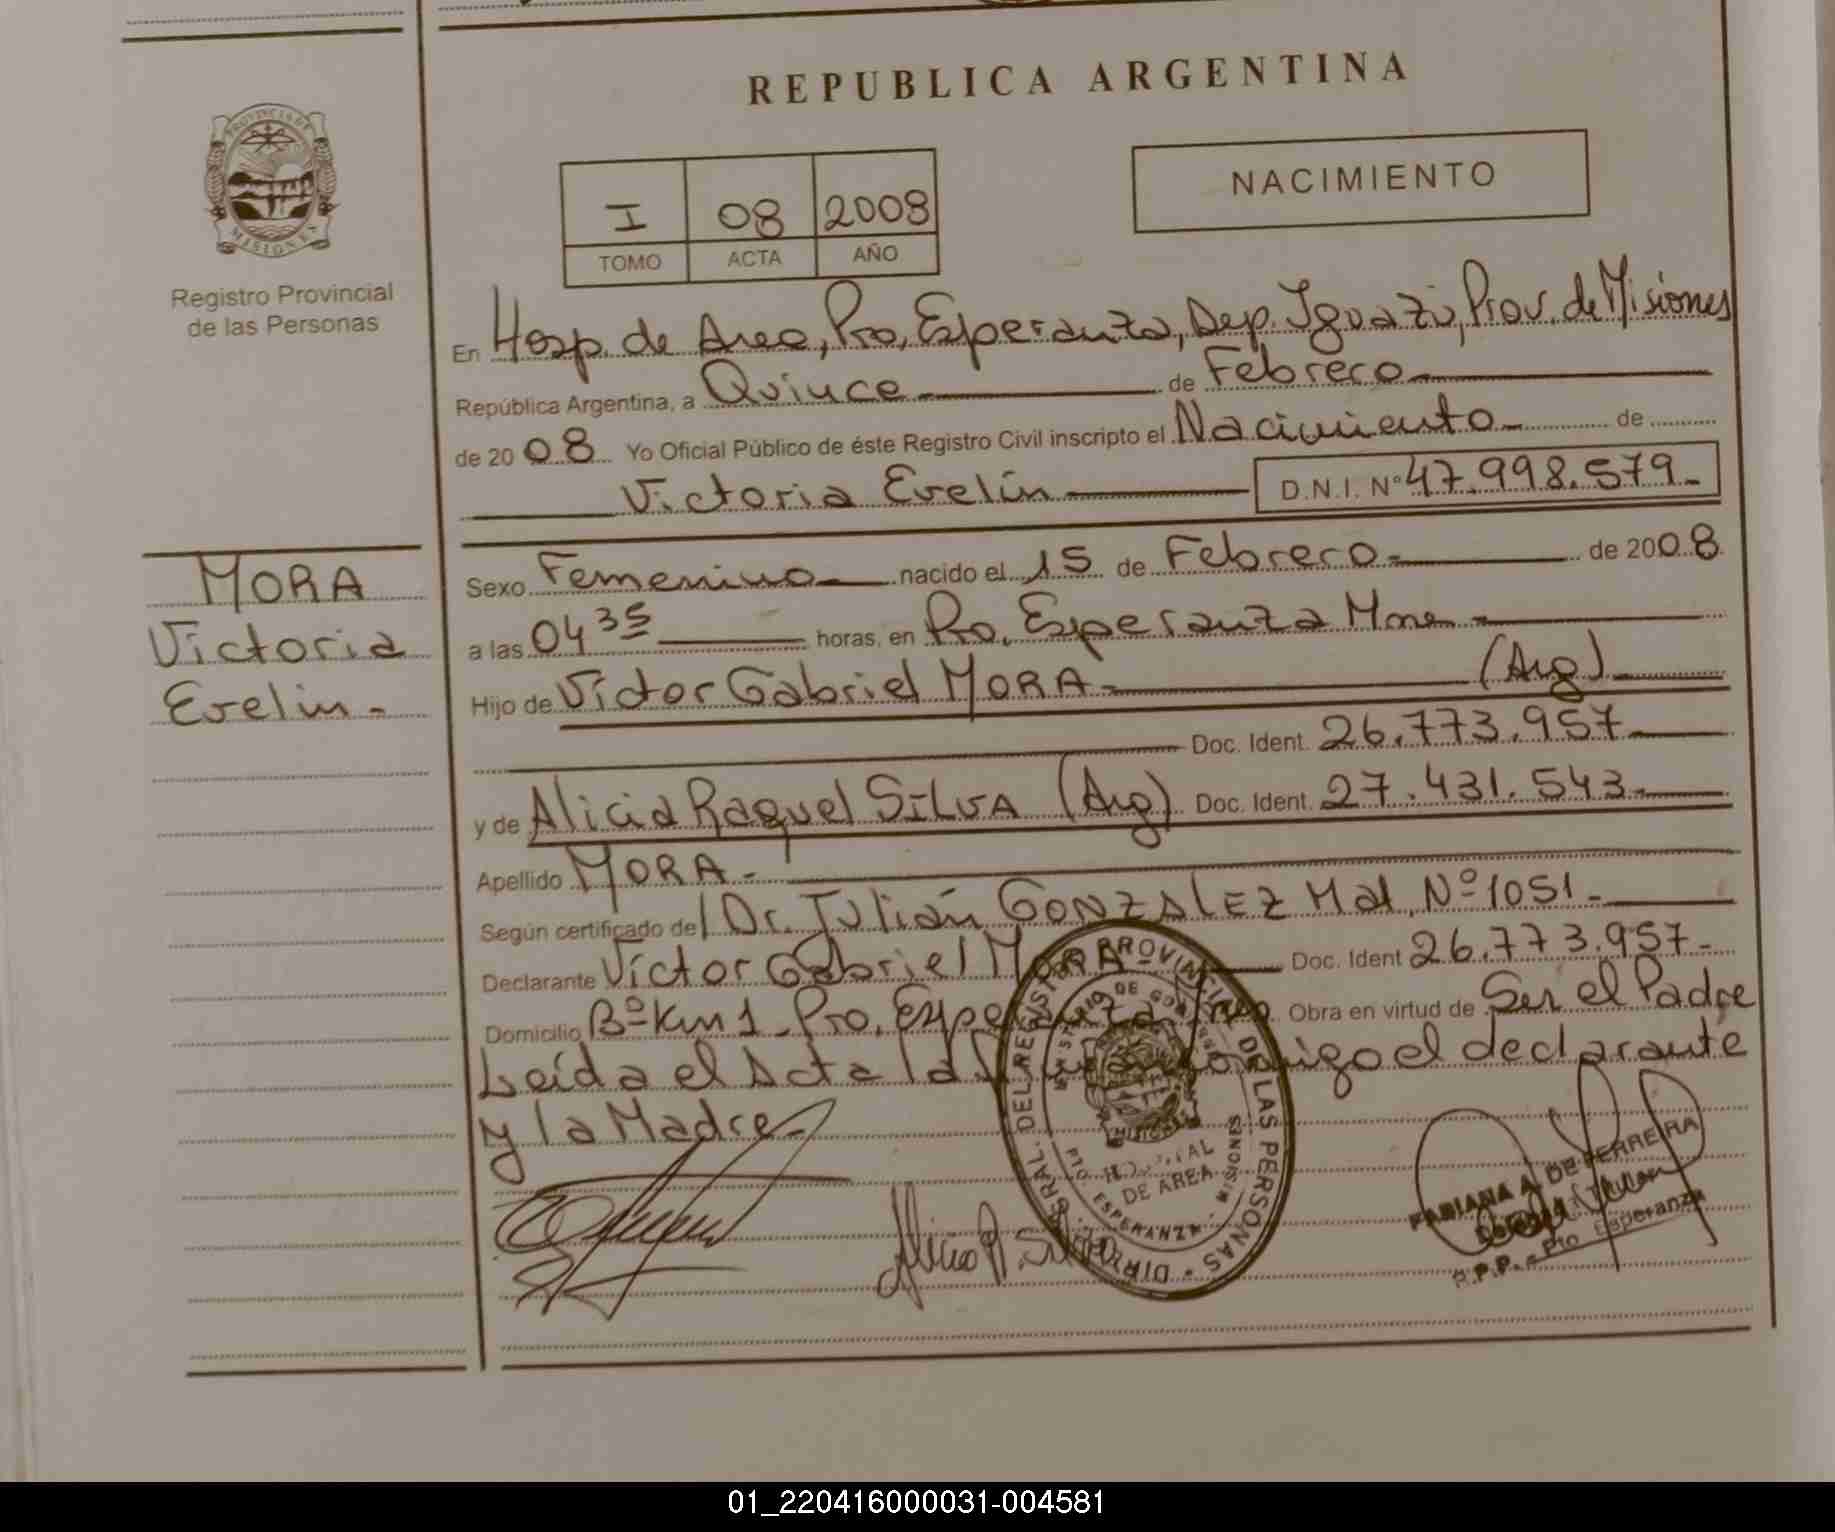 REPUBLICA ARGENTINA
PROVINCIA DE
MISIONES
Registro Provincial
de las Personas
NACIMIENTO
I 08 2008
TOMO ACTA AÑO
En Hosp. de Area, Pto. Esperanza, Dep. Iguazú, Prov. de Misiones
República Argentina, a Quince de Febrero
de 2008 Yo Oficial Público de éste Registro Civil inscripto el Nacimiento de
Victoria Evelin D.N.I. Nº 47.998.579
MORA
Victoria
Evelin
Sexo Femenino nacido el 15 de Febrero de 2008
a las 04 35 horas, en Pto. Esperanza Mnes
Hijo de Víctor Gabriel MORA (Arg)
Doc. Ident. 26.773.957
y de Alicia Raquel SILVA (Arg) Doc. Ident. 27.431.543
Apellido MORA
Según certificado del Dr. Julián GONZALEZ Mat. Nº 1051
Declarante Víctor Gabriel MORA Doc. Ident 26.773.957
Domicilio Bº Km 1 Pto. Esperanza Mnes. Obra en virtud de Ser el Padre
Leída el Acta la conmigo el declarante
y la Madre
DIR. GRAL. DEL REGISTRO PROVINCIAL DE LAS PERSONAS
MINISTERIO DE GOBIERNO
MISIONES
HOSPITAL
DE AREA
ESPERANZA - MISIONES
Alicia R. Silva
FABIANA A. DE FERREIRA
R.P.P. - Pto Esperanza
01_220416000031-004581